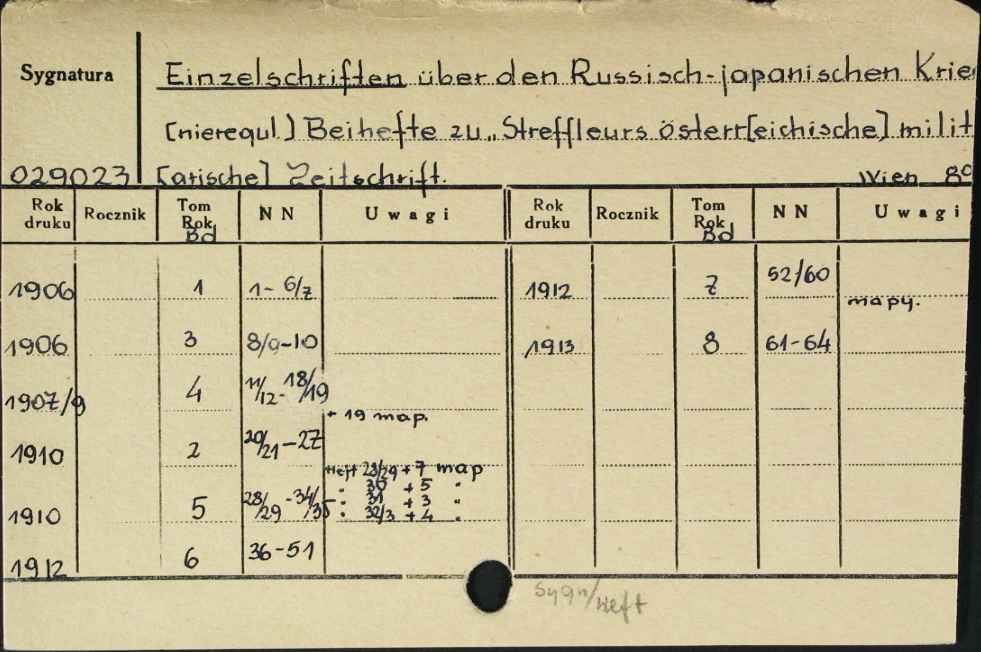 Sygnatura
Einzelschriften über den Russisch-japanischen Krie
(nieregul.) Beihefte zu „Streffleurs österr[eichische] milit
029023 [arische] Zeitschrift. Wien 8°
Rok druku Rocznik Tom Rok Bd NN Uwagi Rok druku Rocznik Tom Rok Bd NN Uwagi
1906 1 1-6/7 1912 7 52/60 mapy.
1906 3 8/9-10 1913 8 61-64
1907/9 4 11/12-18/19 + 19 map.
1910 2 20/21-27
1910 5 28/29-34/35 Heft 28/29 + 7 map
" 30 + 5 "
" 31 + 3 "
" 32/3 + 4 "
1912 6 36-51
Sygn/Heft